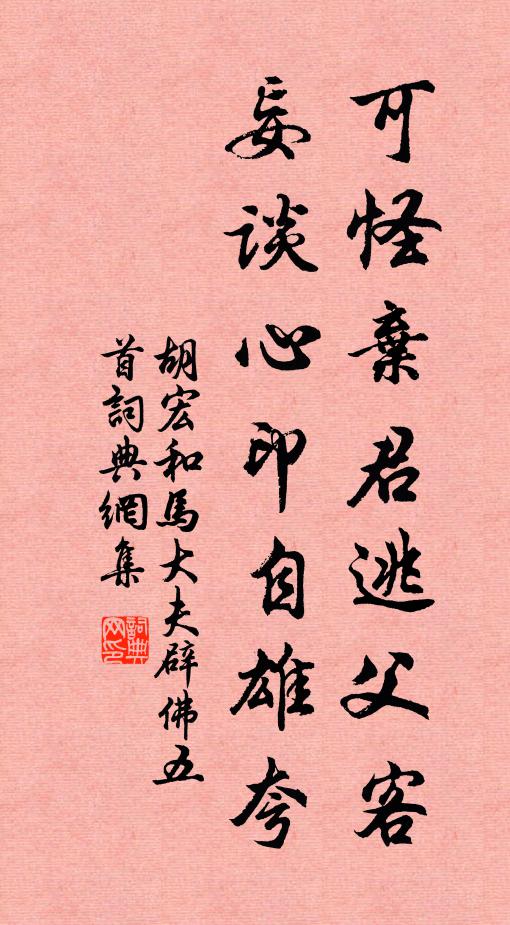 可怪棄君逃父客
妄談心印自雄夸
胡宏和馬大夫辟佛五
首詞典網集
詞典網印